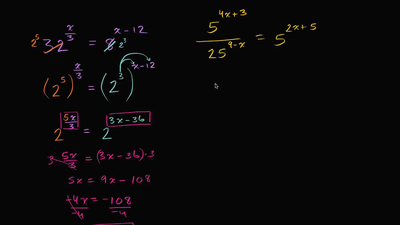 2^5 32^(x/3) = 8^(x-12) 2^3
(2^5)^(x/3) = (2^3)^(x-12)
2^(5x/3) = 2^(3x-36)
3 · 5x/3 = (3x-36)·3
5x = 9x - 108
-4x/-4 = -108/-4
5^(4x+3) / 25^(9-x) = 5^(2x+5)